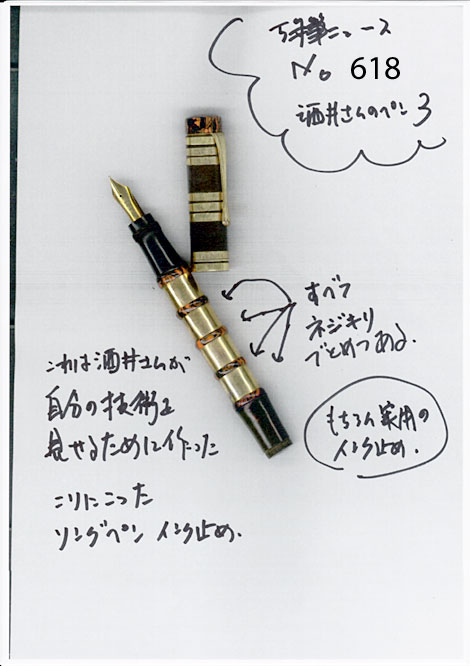 万年筆ニュース
No 618
酒井さんのペン 3
すべて
ネジキリ
でとめつある.
もちろん実用の
インク止め.
これは酒井さんが
自分の技術を
見せるために作った
こりにこった
リングペン インク止め.